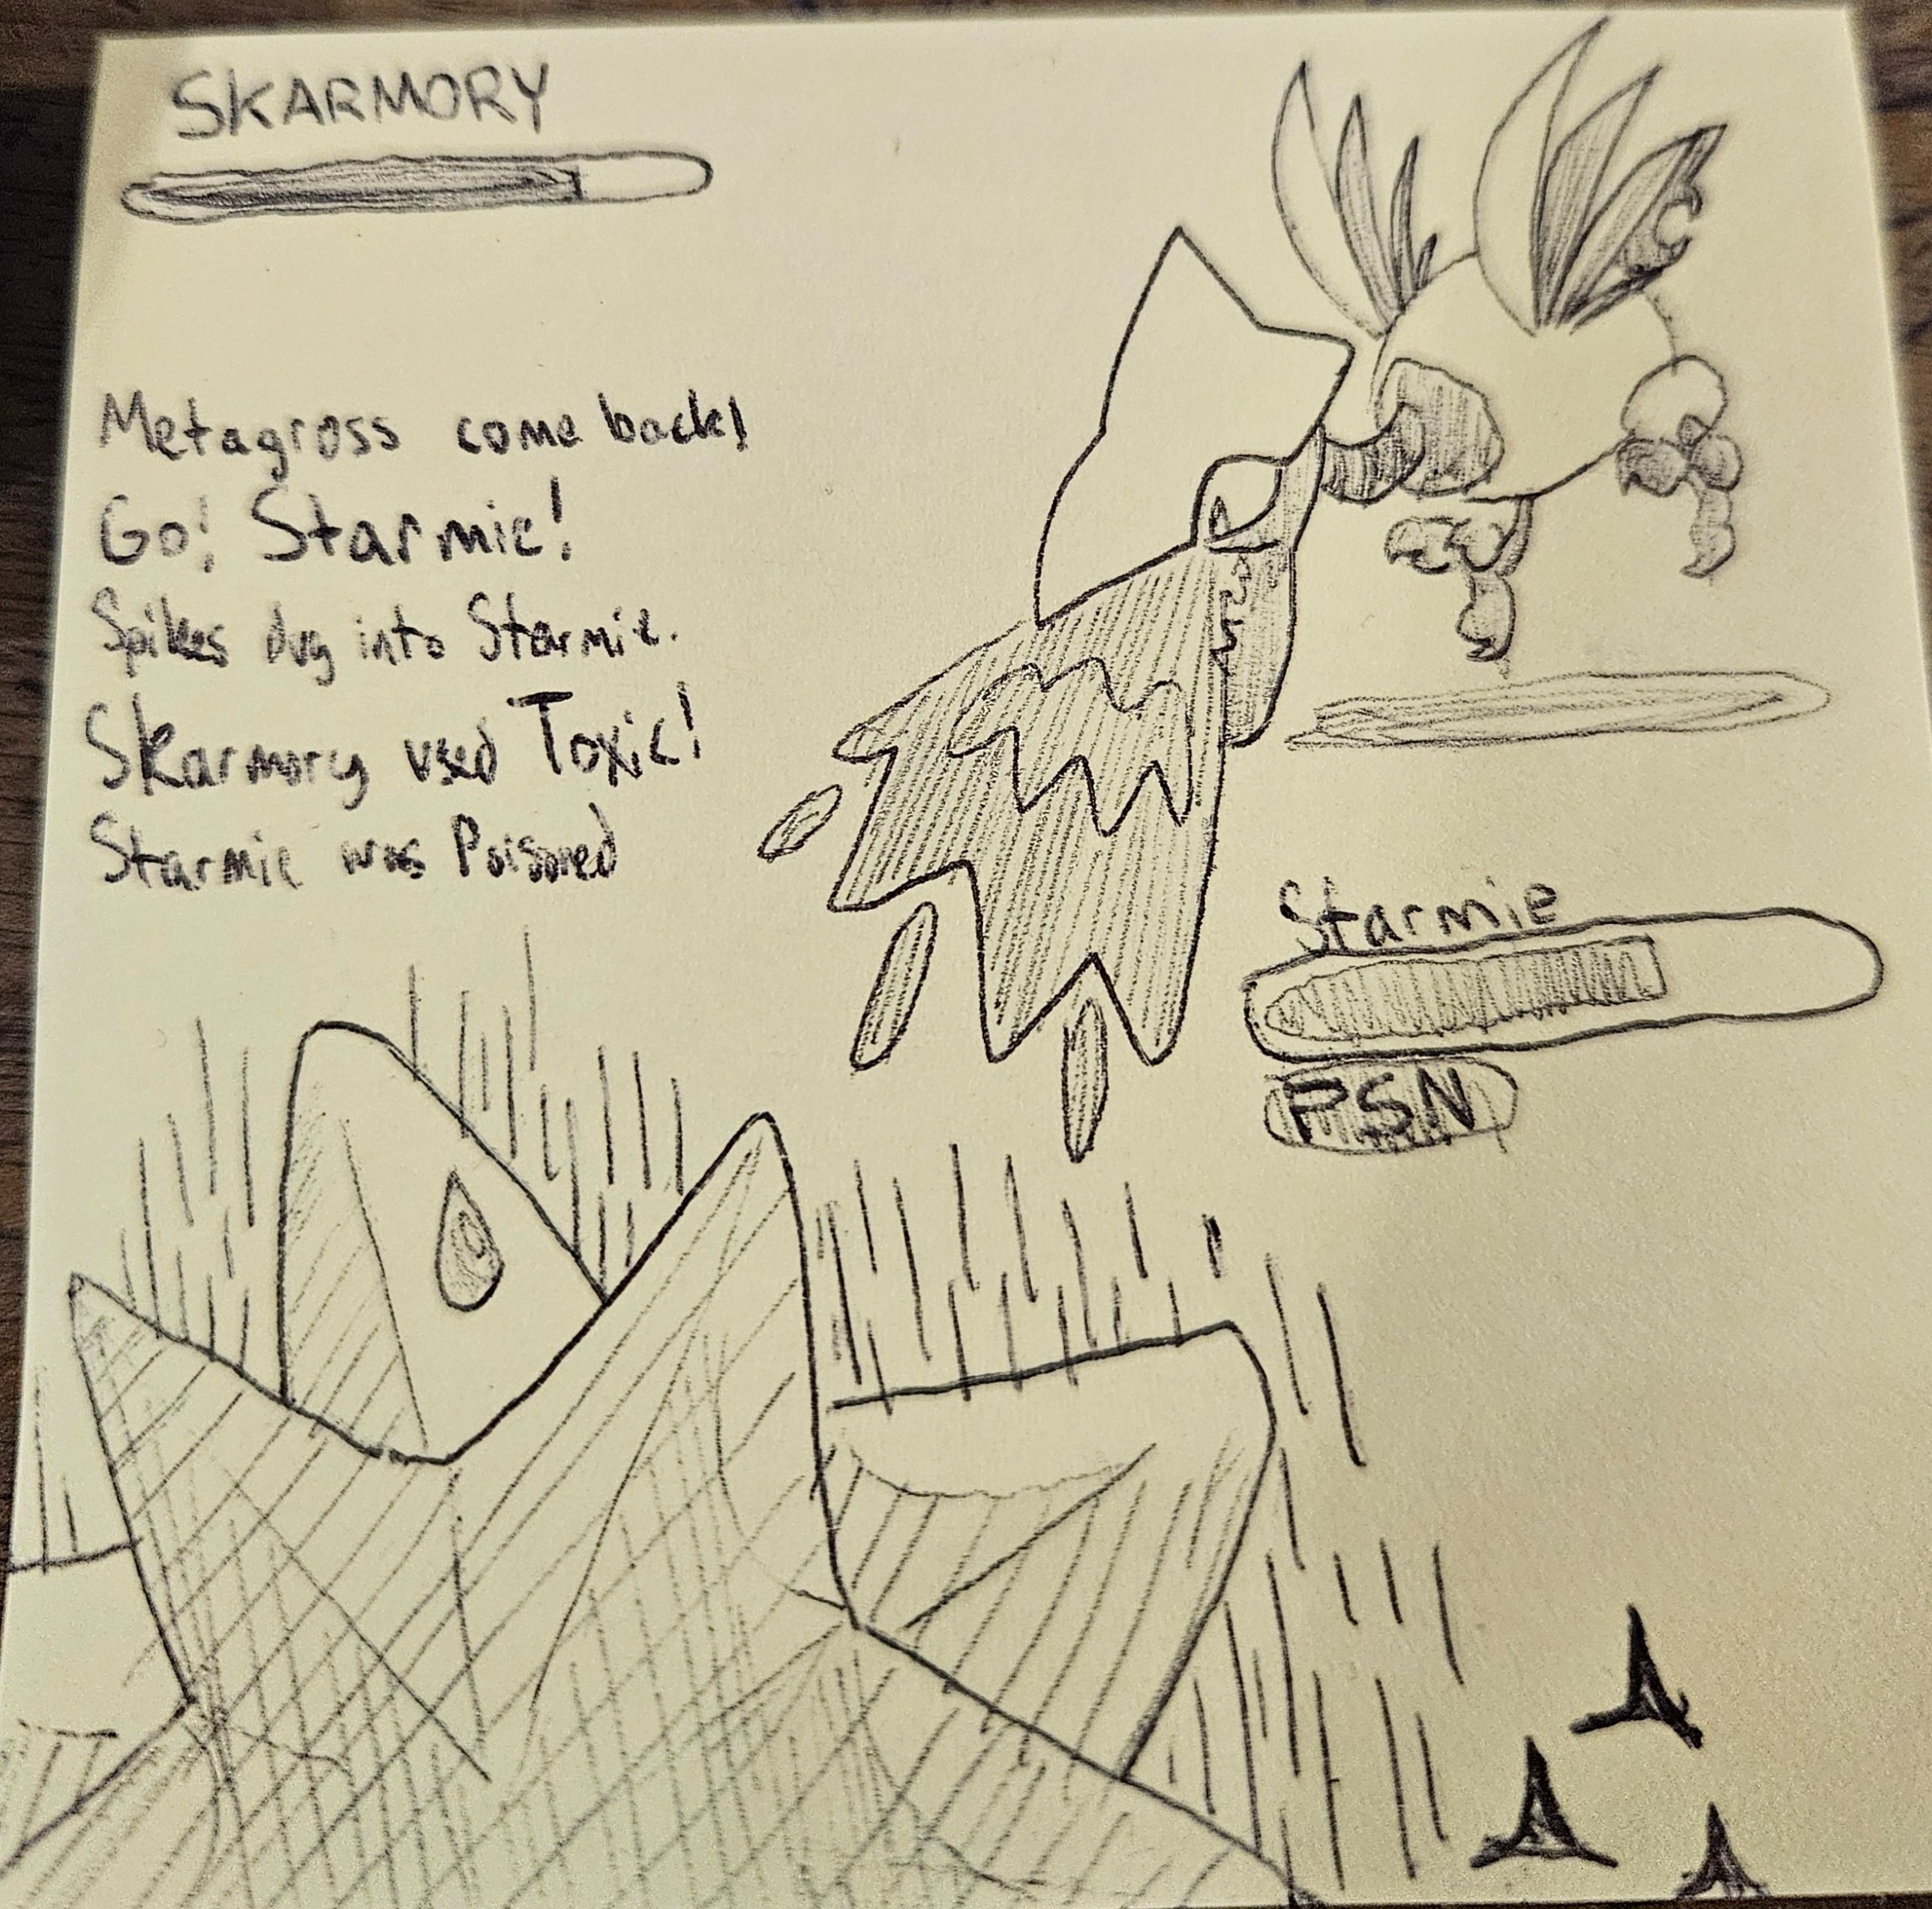 SKARMORY
Metagross come back!
Go! Starmie!
Spikes dug into Starmie.
Skarmory used Toxic!
Starmie was Poisoned
Starmie
PSN